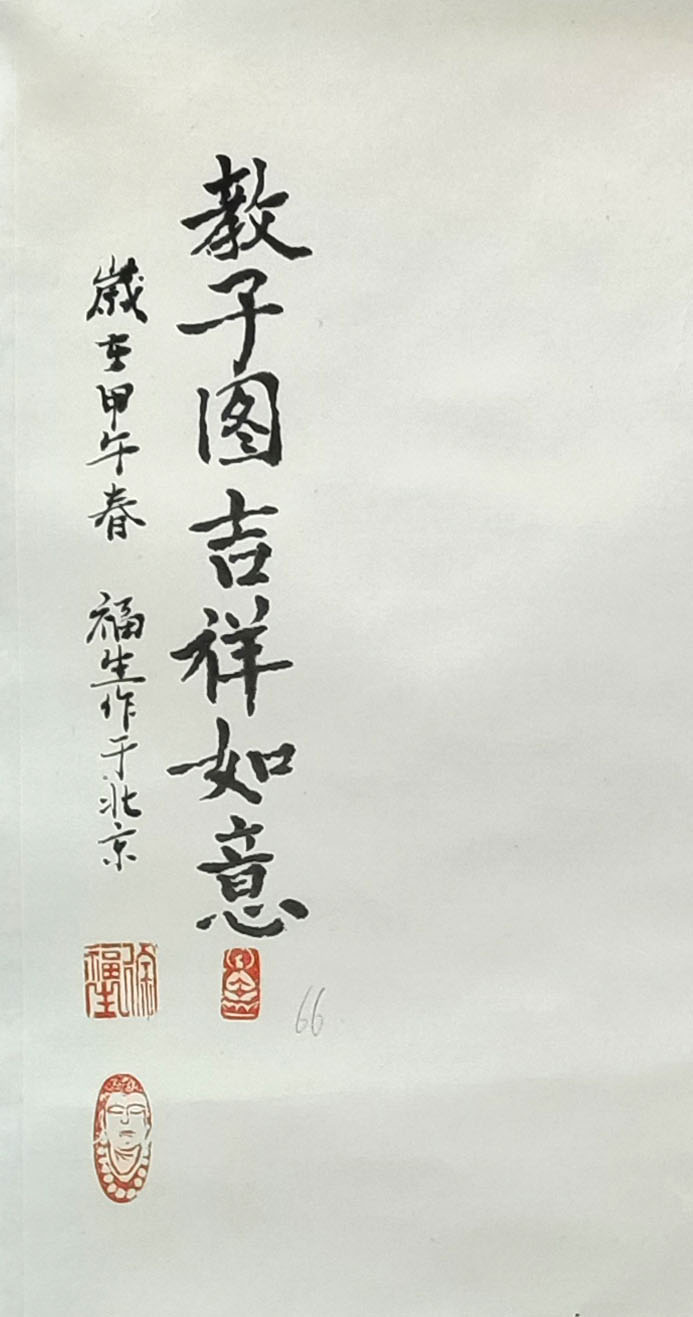 教子图吉祥如意
歲在甲午春 福生作于北京
徐福生
66